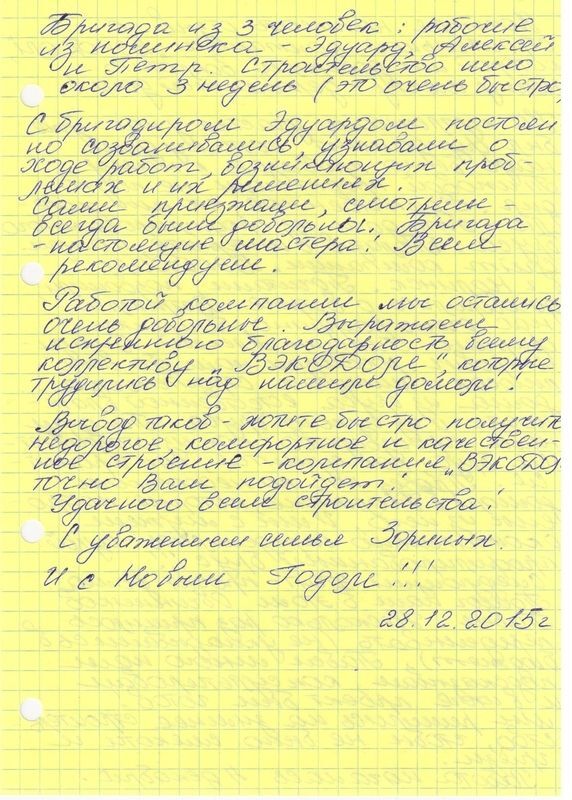 Бригада из 3 человек: рабочие
из - Эдуард, Алексей
и Пётр. Строительство шло
около 3 недель (это очень быстро,
С бригадиром Эдуардом постоян
но созванивались, узнавали о
ходе работ, возникающих проб-
лемах и их решениях.
Сами приезжали, смотрели -
всегда были довольны. Бригада
- настоящие мастера! Всем
рекомендуем.
Работой компании мы остались
очень довольны. Выражаем
искреннюю благодарность всему
коллективу „ВЭКОДОМ", которые
трудились над нашим домом!
Вывод таков - хотите быстро получить
недорогое, комфортное и качествен-
ное строение - компания „ВЭКОДО
точно Вам подойдет!
Удачного всем строительства!
С уважением семья Зориных.
И с Новым Годом!!!
28.12.2015г